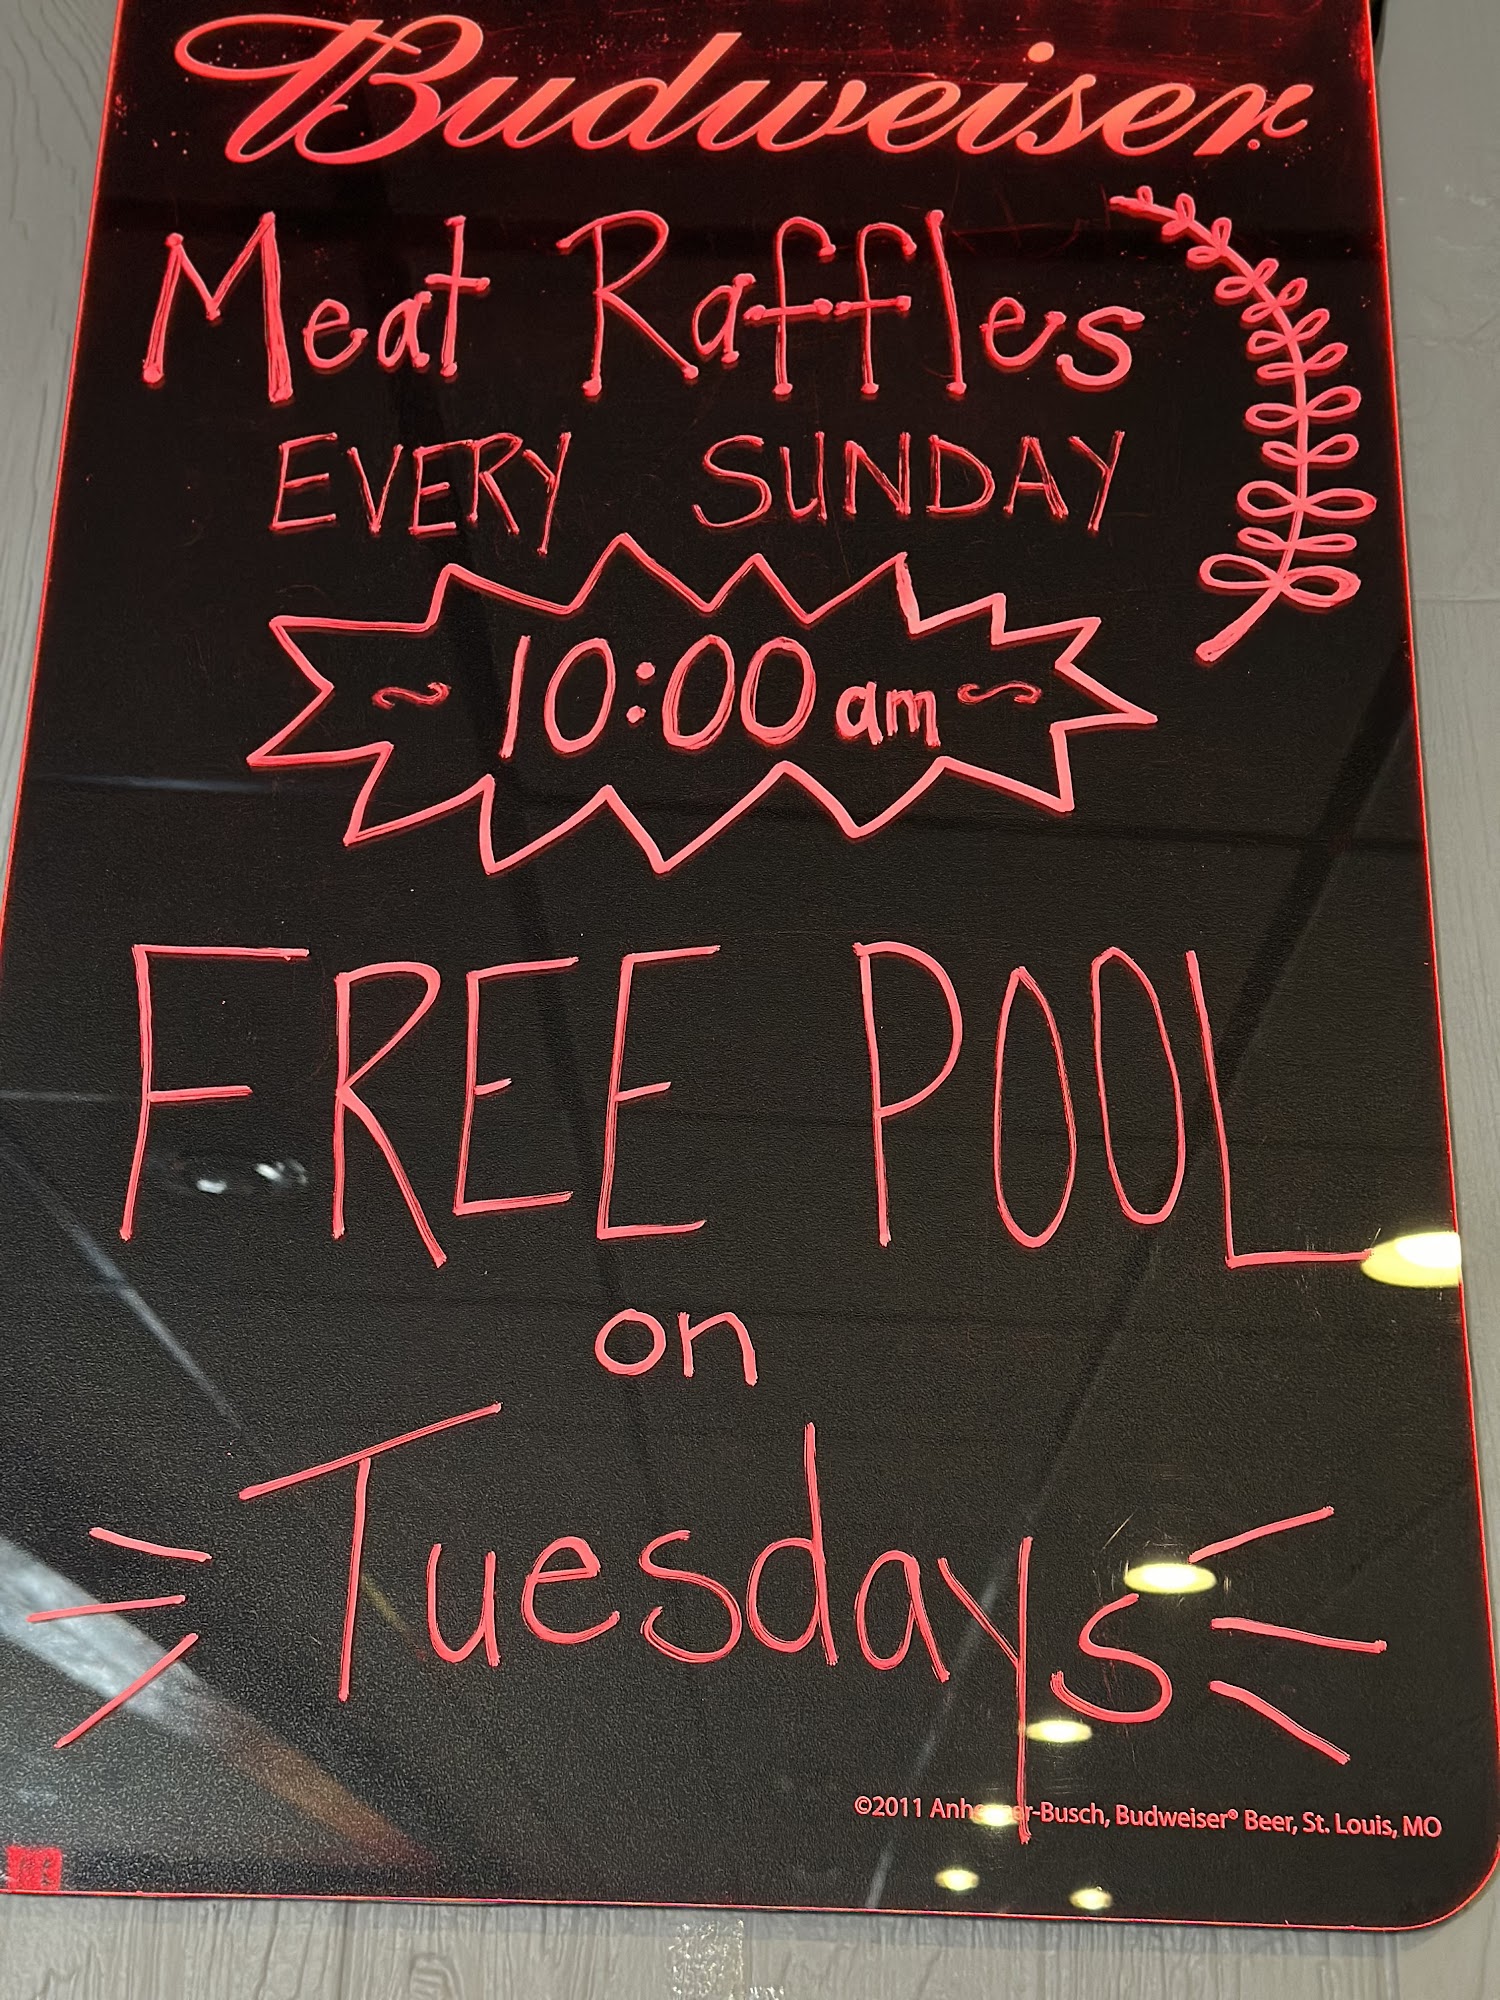 Budweiser
Meat Raffles
EVERY SUNDAY
~ 10:00 am ~
FREE POOL
on
Tuesdays
©2011 Anheuser-Busch, Budweiser® Beer, St. Louis, MO